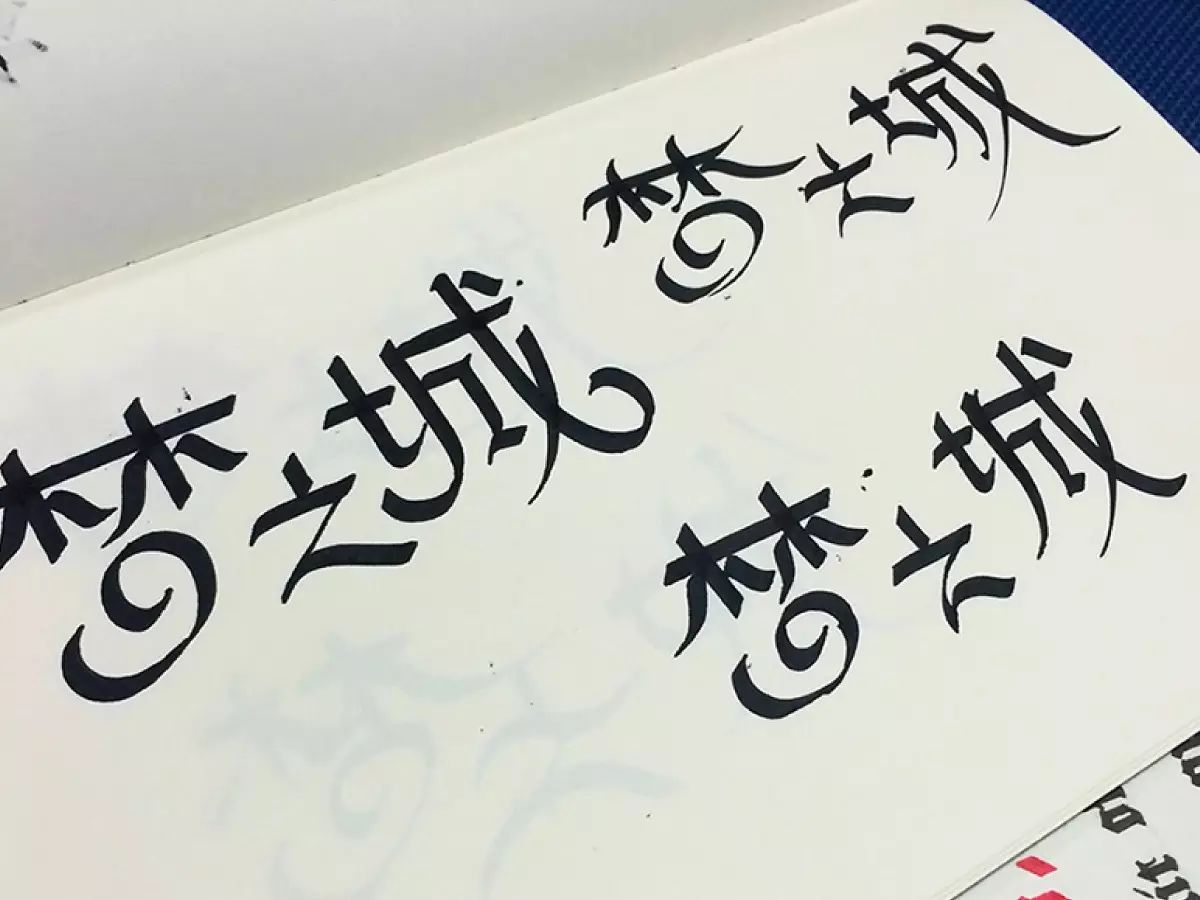 梦之城
梦之城
梦之城